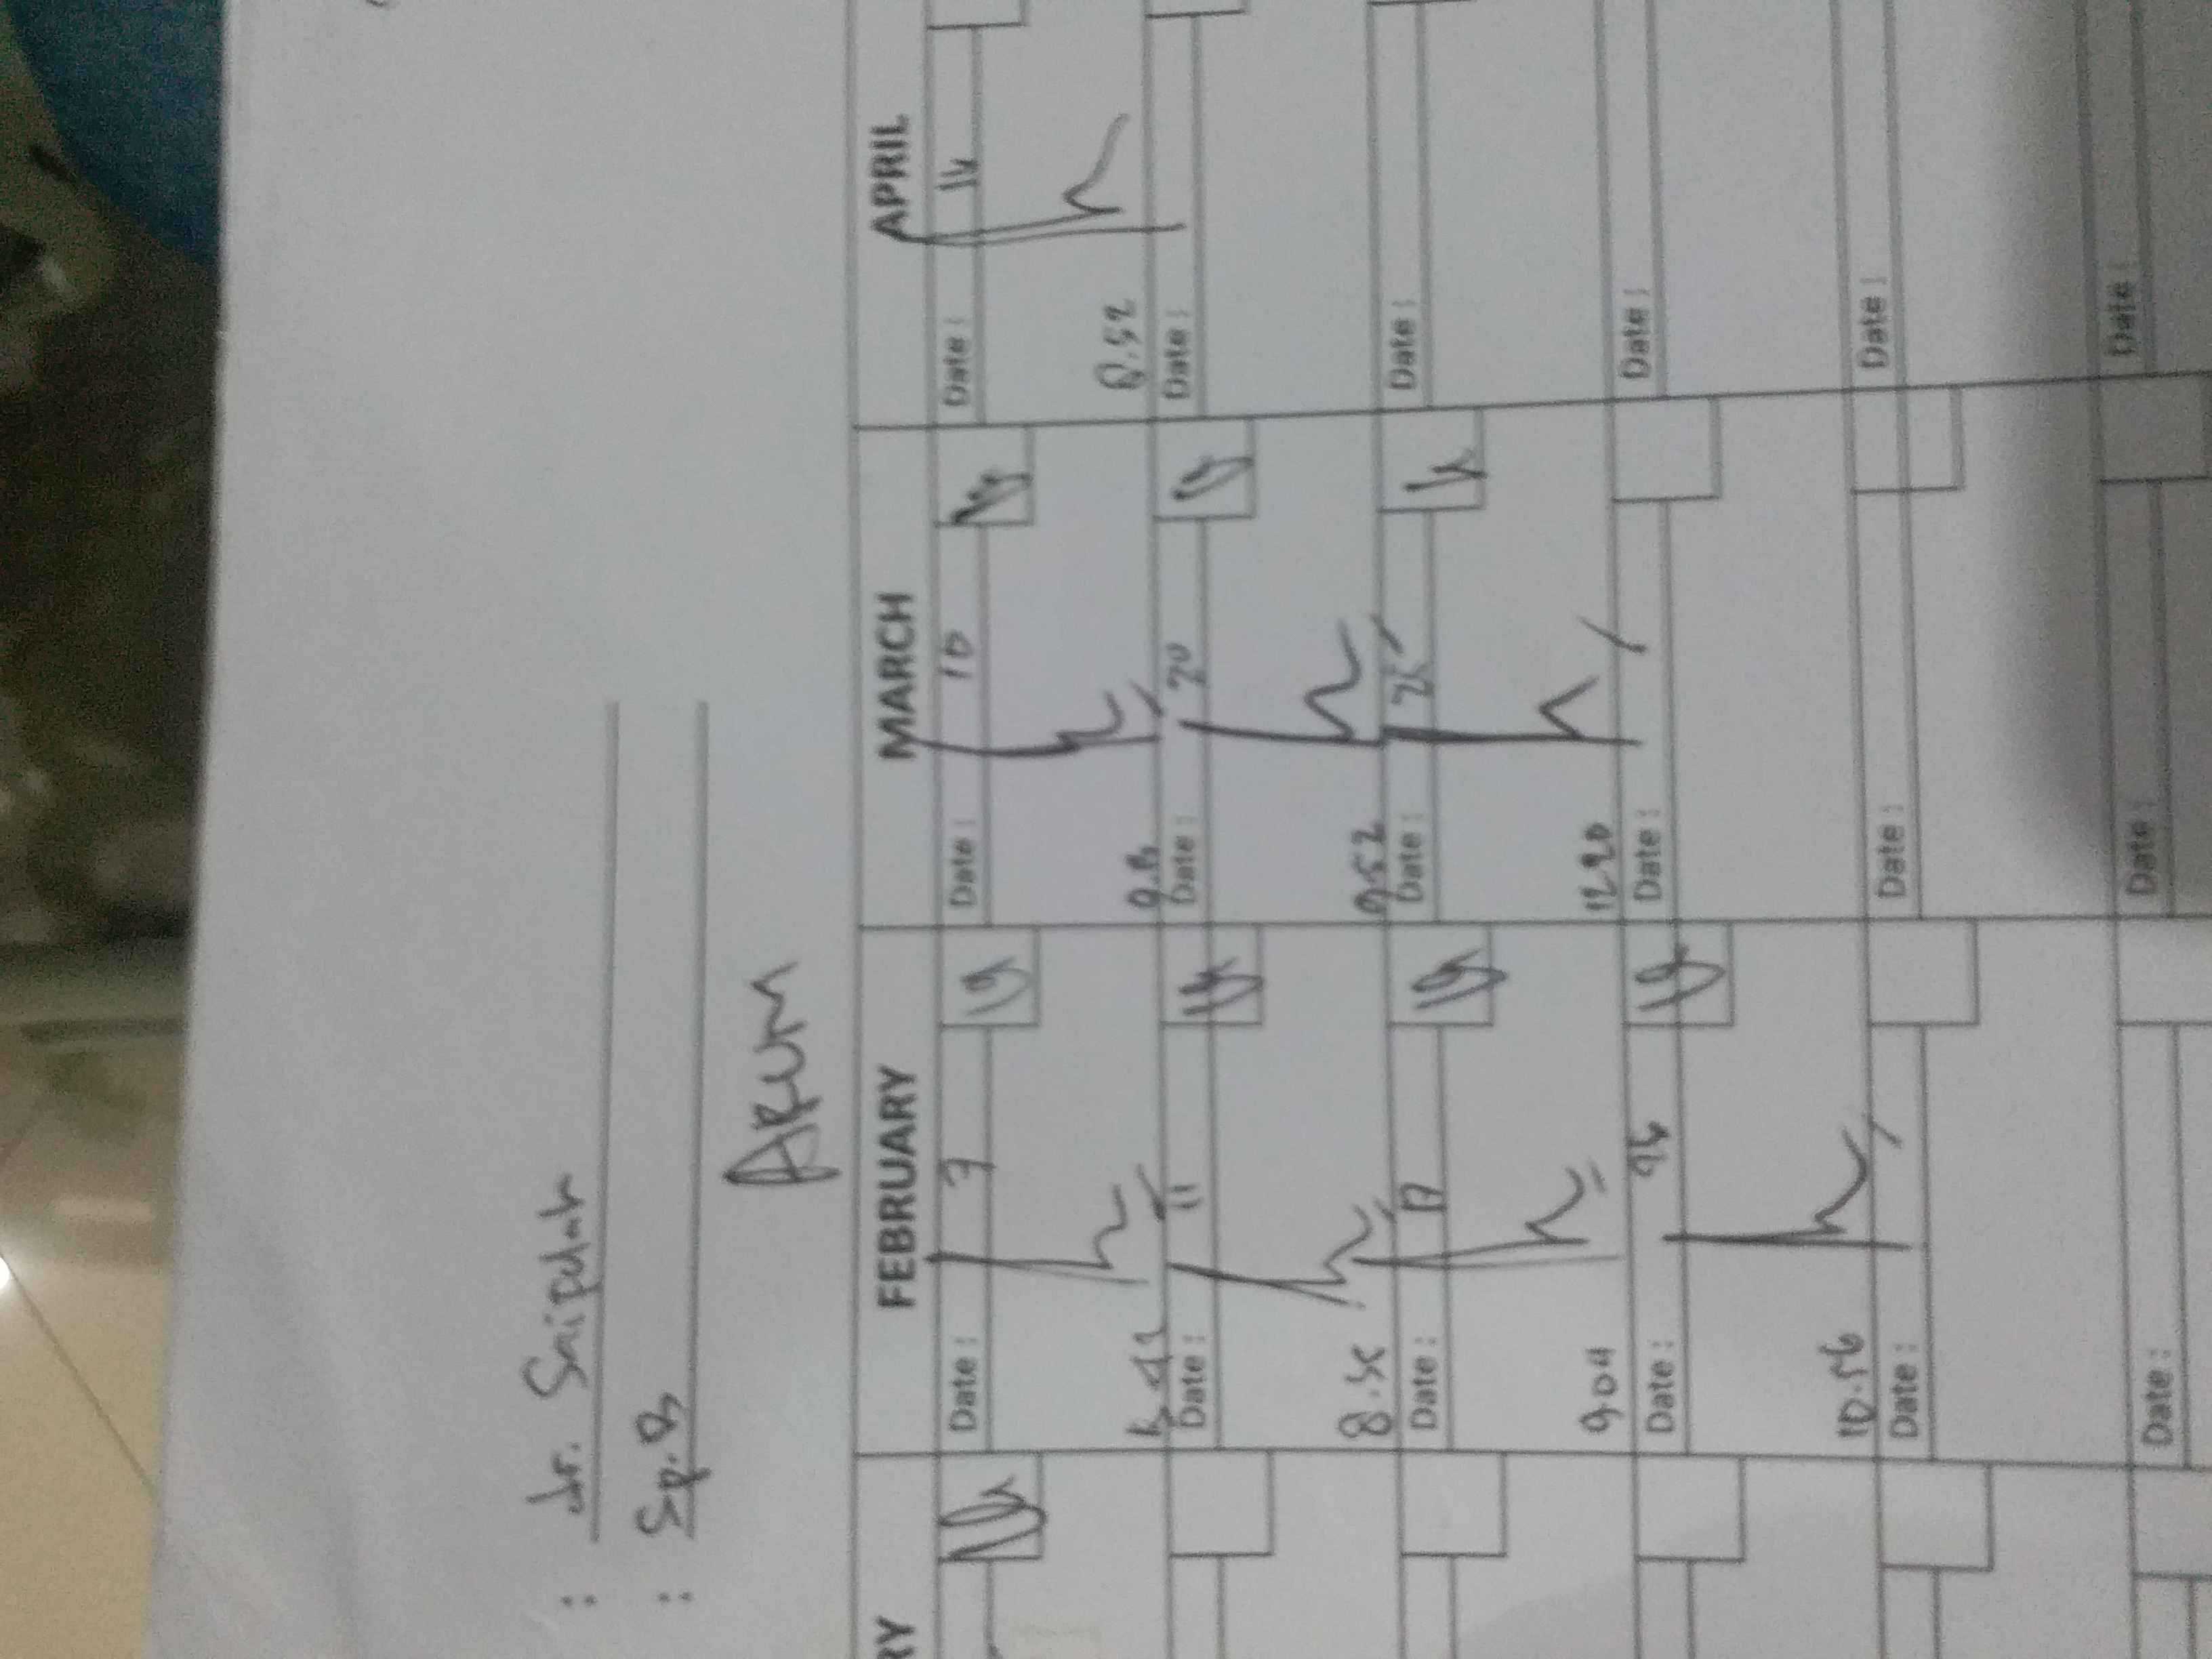 : dr. Saipulah
: Sp.B
RY FEBRUARY MARCH APRIL
Date : 7 Date : 10 Date : 14
9.13 8.52
Date : 11 Date : 20 Date :
9.52
Date : 17 Date : 25 Date :
9.04 12.20
Date : 26 Date : Date :
10.56
Date : Date : Date :
Date : Date : Date :